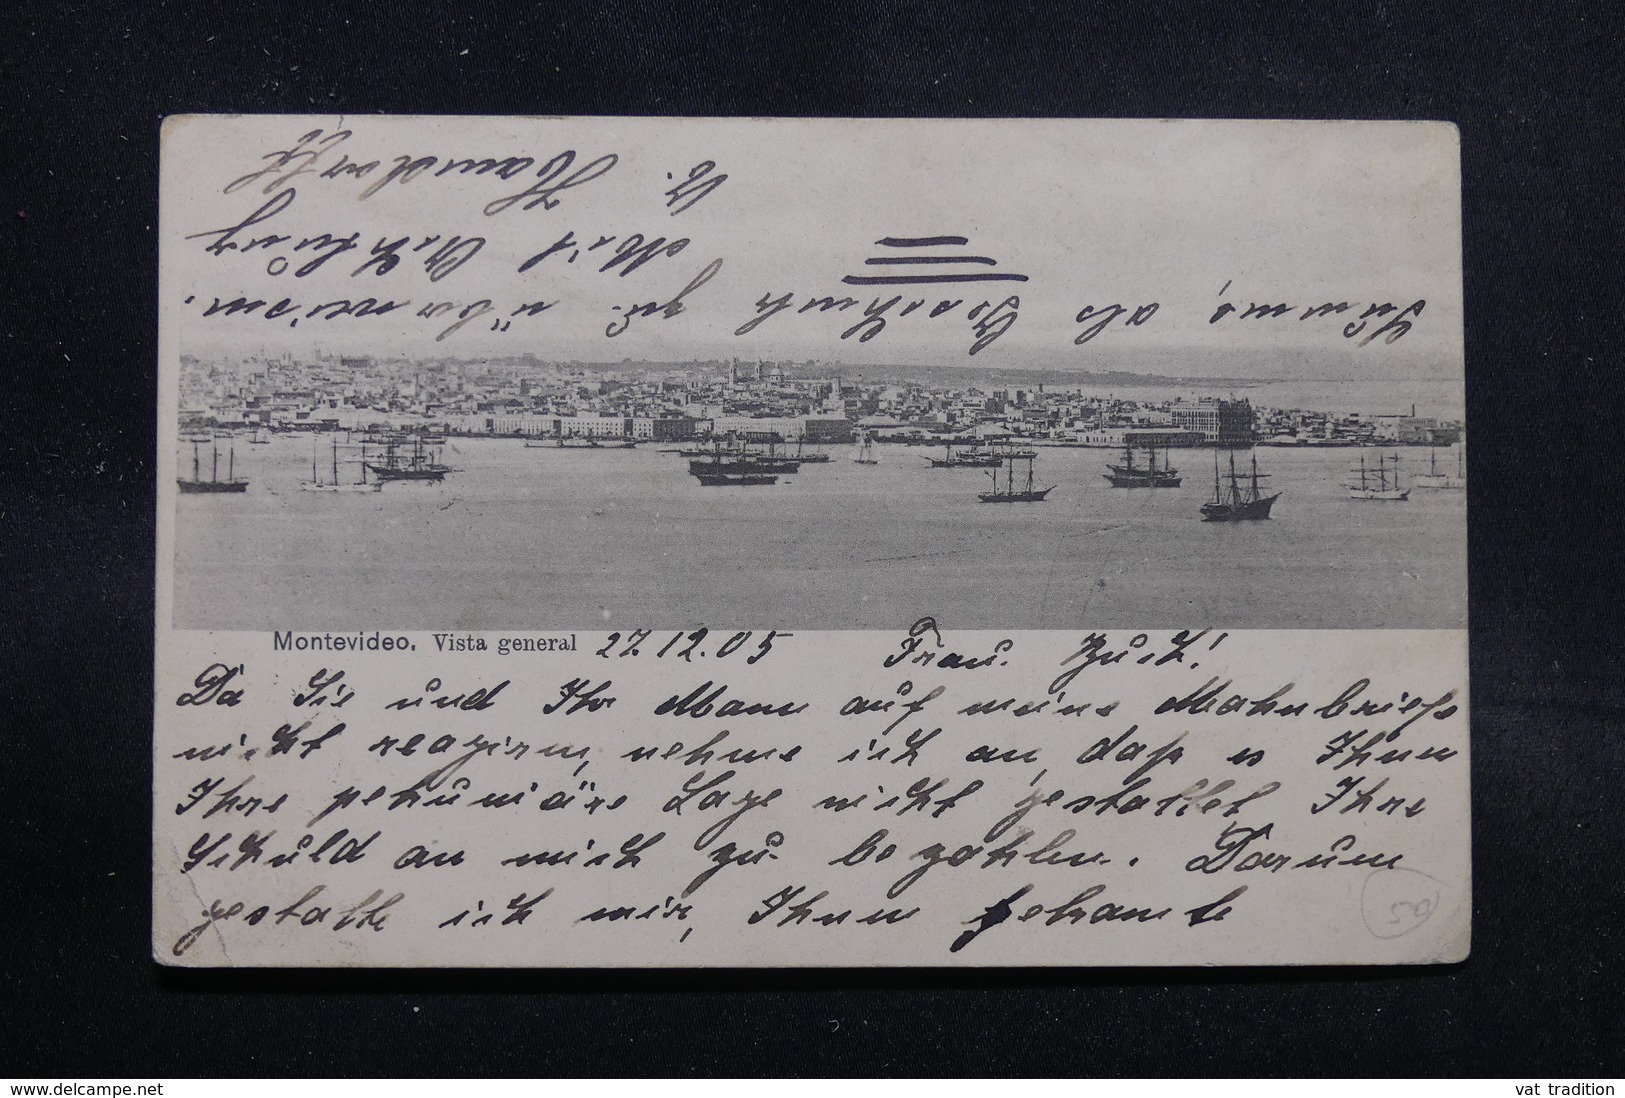 Montevideo. Vista general 27.12.05 Frau. Zuch!
Da Sie und Ihr Mann auf meine Mahnbriefe
nicht reagiren, nehme ich an, daß es Ihnen
Ihre pekuniäre Lage nicht gestattet Ihre
Schuld an mich zu bezahlen. Darum
gestatte ich mir, Ihnen
Summe, als Geschenk zu überweisen.
Mit Achtung
50
www.delcampe.net
vat tradition